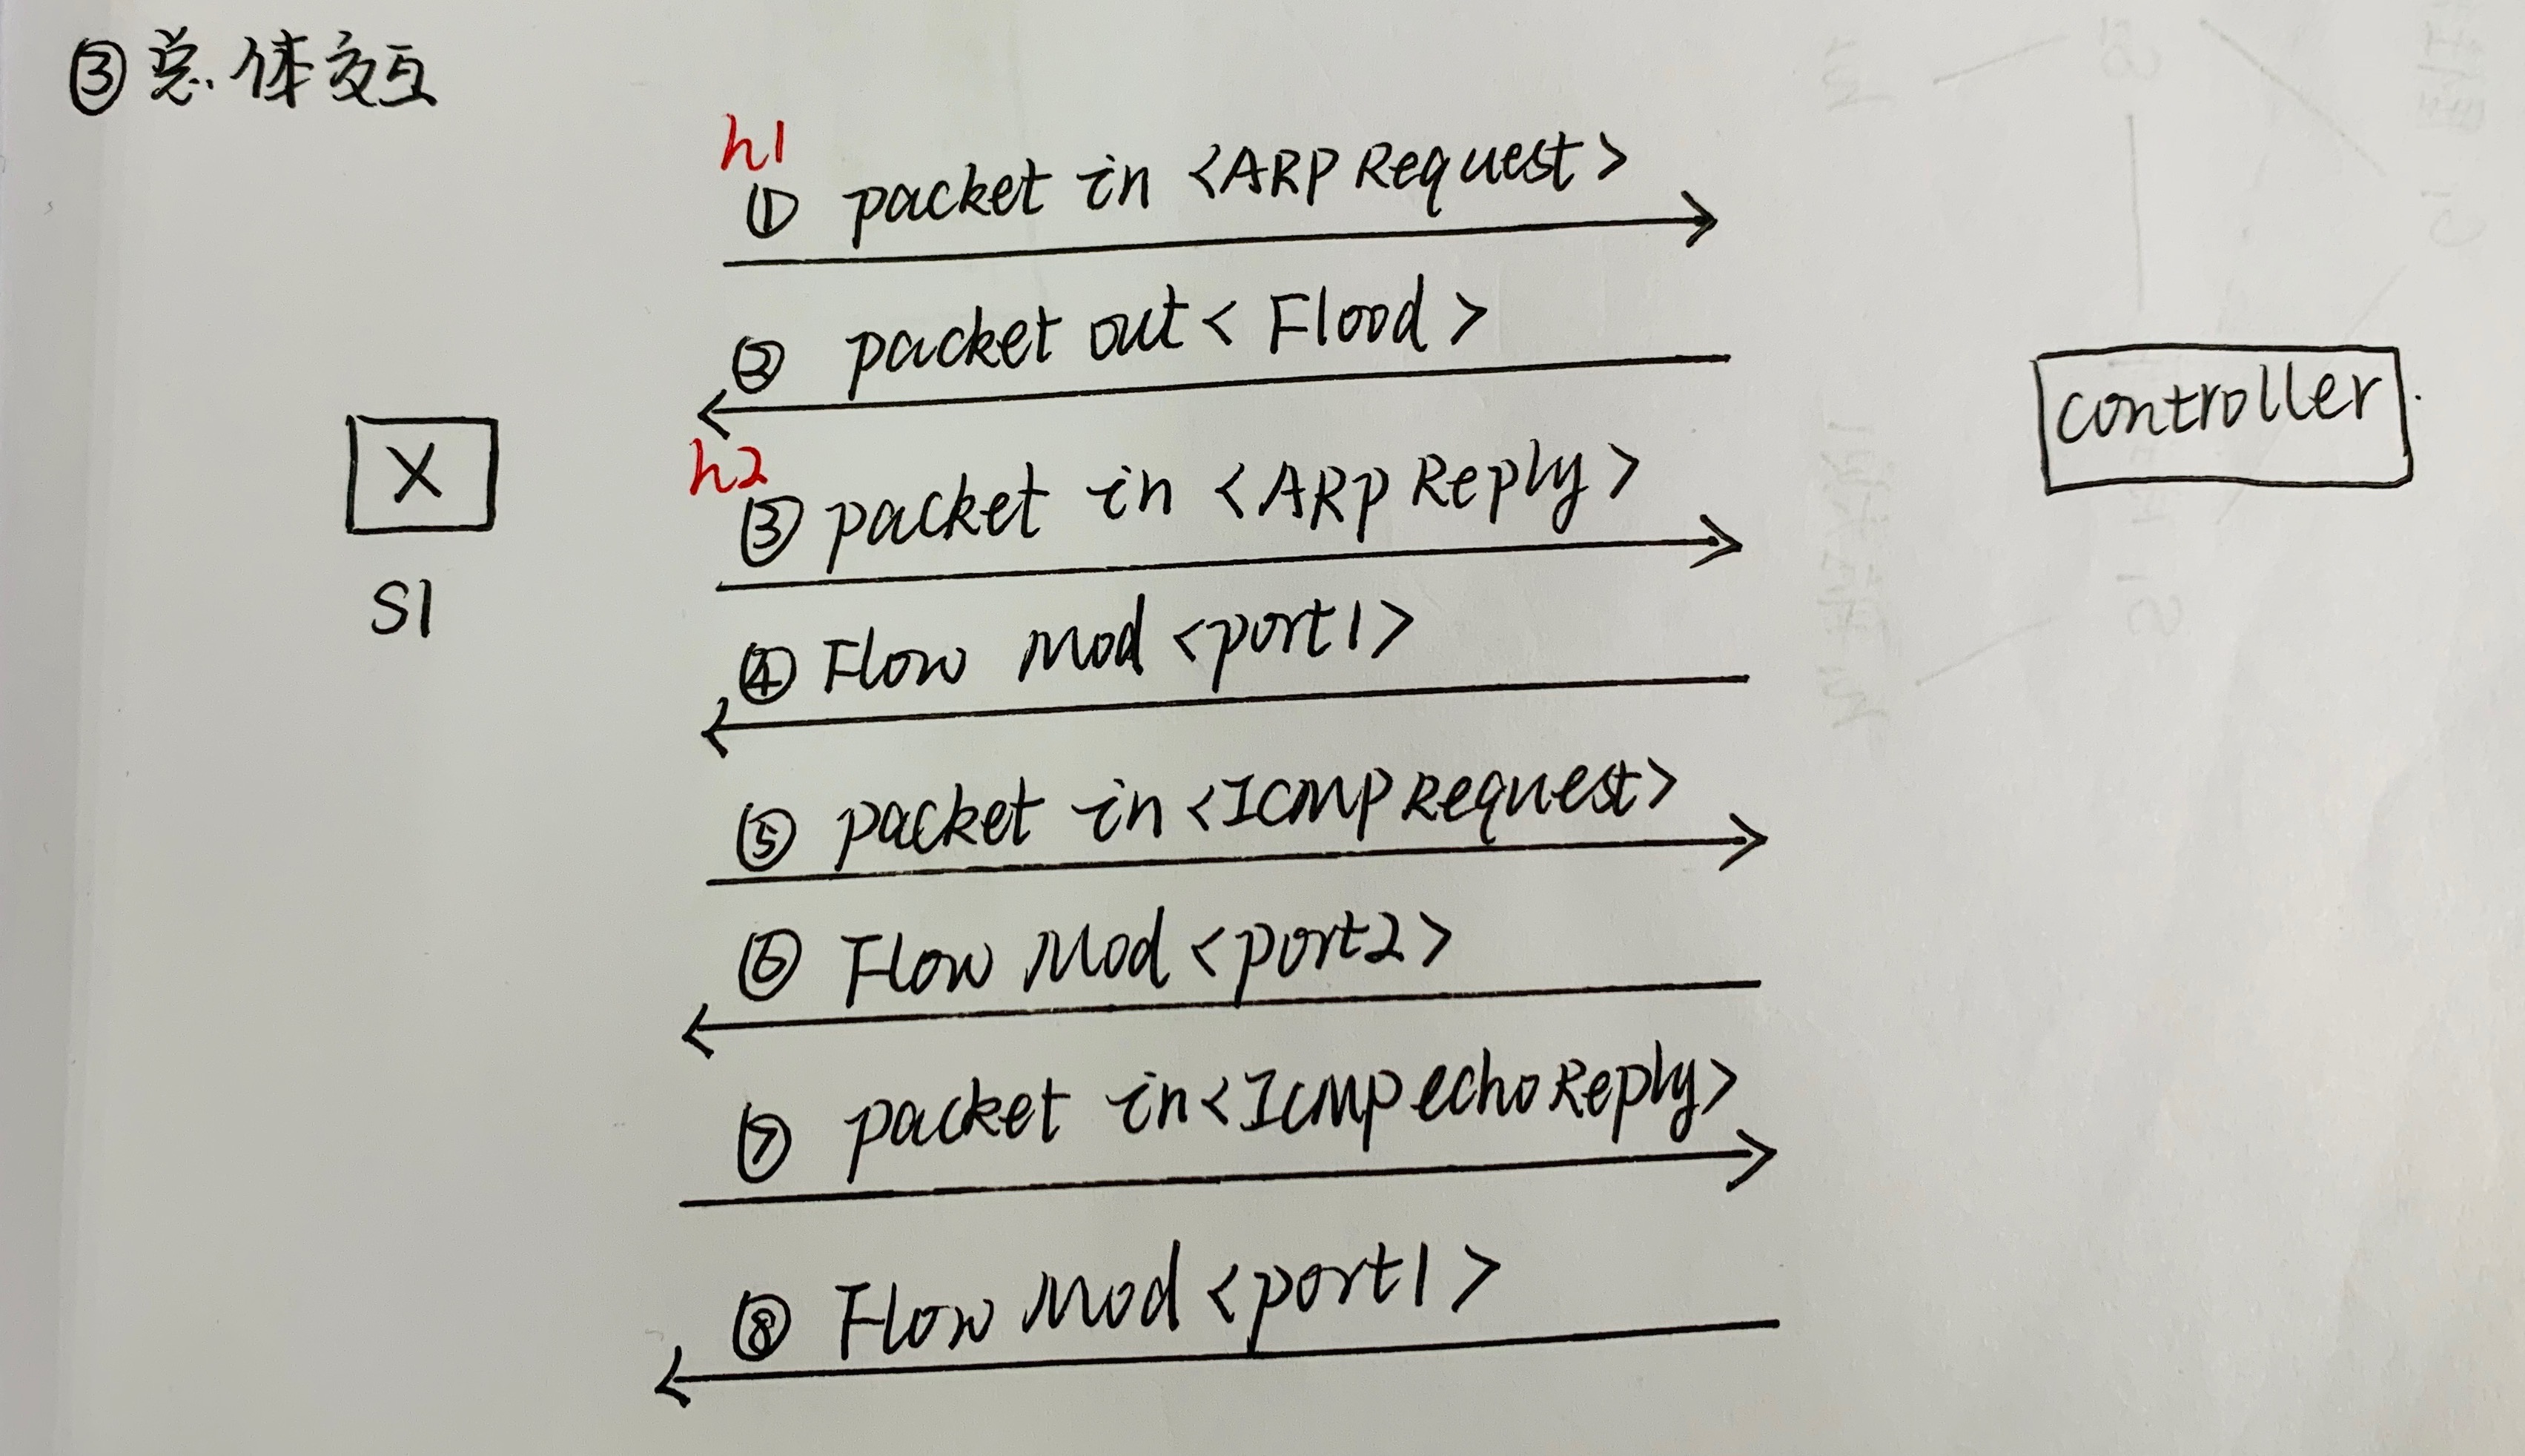 ③ 总体交互
h1
① packet in <ARP Request>
② packet out < Flood >
h2
③ packet in <ARP Reply>
④ Flow Mod <port1>
⑤ packet in <ICMP Request>
⑥ Flow Mod <port2>
⑦ packet in <ICMP echo Reply>
⑧ Flow Mod <port1>
X
S1
controller